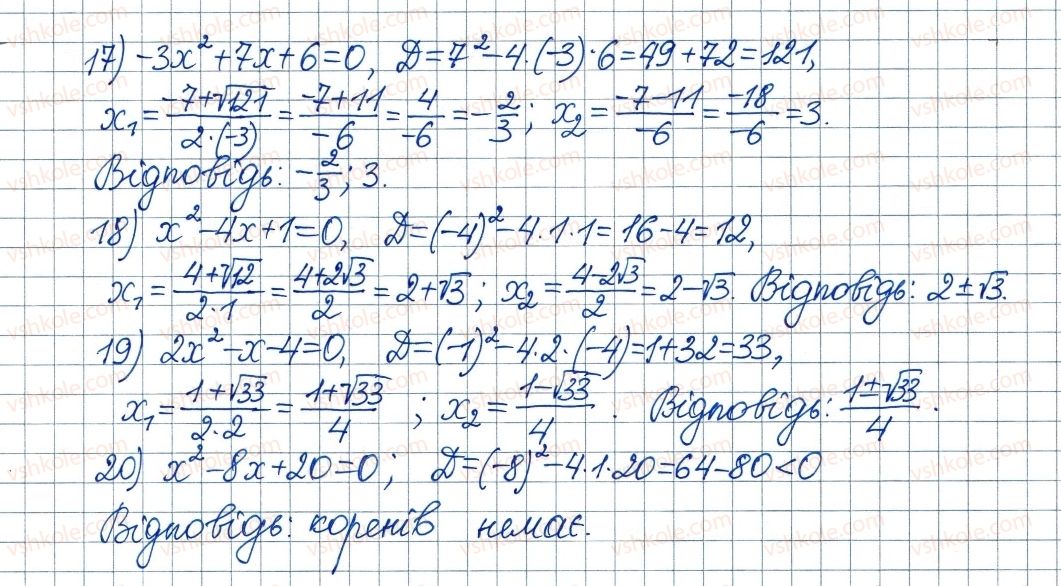 17) -3x² + 7x + 6 = 0, D = 7² - 4·(-3)·6 = 49 + 72 = 121,
x₁ = (-7+√121)/(2·(-3)) = (-7+11)/(-6) = 4/(-6) = -2/3; x₂ = (-7-11)/(-6) = (-18)/(-6) = 3.
Відповідь: -2/3; 3.
18) x² - 4x + 1 = 0, D = (-4)² - 4·1·1 = 16 - 4 = 12,
x₁ = (4+√12)/(2·1) = (4+2√3)/2 = 2+√3; x₂ = (4-2√3)/2 = 2-√3. Відповідь: 2±√3.
19) 2x² - x - 4 = 0, D = (-1)² - 4·2·(-4) = 1 + 32 = 33,
x₁ = (1+√33)/(2·2) = (1+√33)/4; x₂ = (1-√33)/4. Відповідь: (1±√33)/4.
20) x² - 8x + 20 = 0; D = (-8)² - 4·1·20 = 64 - 80 < 0
Відповідь: коренів немає.